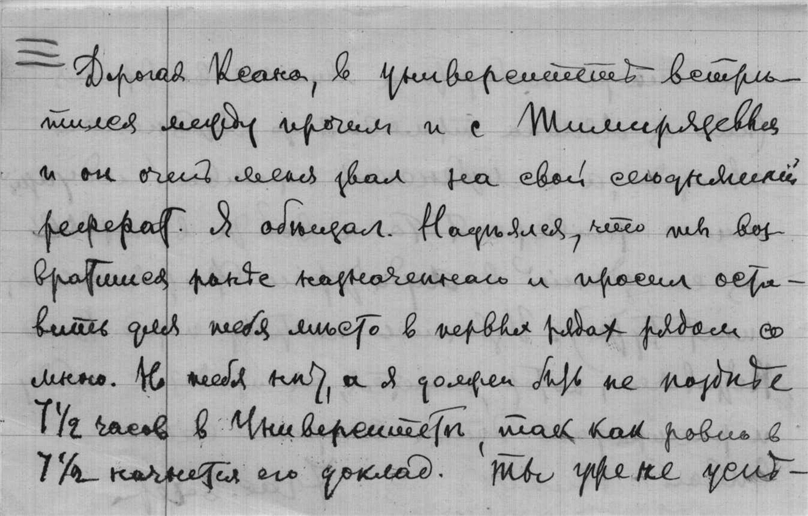 Дорогая Ксана, в университетѣ встрѣ-
тился между прочим и с Тимирязевым
и он очень меня звал на свой сегодняшний
реферат. Я обѣщал. Надѣялся, что ты воз-
вратишься ранѣе назначеннаго и просил оста-
вить для тебя мѣсто в первых рядах рядом со
мною. Но тебя нѣт, а я должен быть не позднѣе
7½ часов в Университетѣ, так как ровно в
7½ начнется его доклад. Ты уже не успѣ-